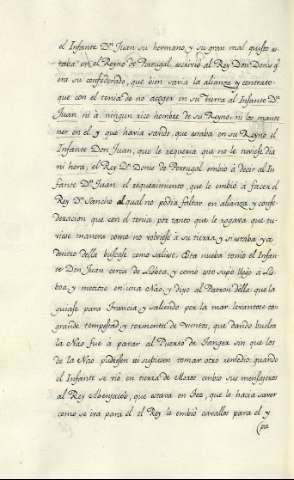 el Infante Dⁿ Juan su hermano, y su gran mal quisto es-
taba en el Reyno de Portugal, escrivió al Rey Don Donis q̃
era su confederado, que bien savia la alianza y contrato
que con el tenia de no acoger en su tierra al Infante Dⁿ
Juan ni à ningun rico hombre de su Reyno, ni los mante
ner en el y que havia savido, que estaba en su Reyno el
Infante Don Juan, que le requeria que no le tuviese dia
ni hora, el Rey Dⁿ Donis de Portugal embio à decir al In
fante Dⁿ Juan el requerimiento, que le embió à facer el
Rey Dⁿ Sancho al qual no podia faltar en alianza y confe
deracion que con el tenia por tanto que le rogava que tu-
viese manera como no robase à su tierra, y si estaba ya
dentro della buscase como saliese. Esta nueba tomó el Infan
te Don Juan cerca de Lisboa, y como esto supo llegò à Lis
boa, y metiose en una Nao, y dijo al Patron della que la
guiase para Francia, y saliendo por la mar levantose tan
grande tempestad y tormenta de vientos, que dando buelta
la Nao fue à parar al Puerto de Tanger sin que los
de la Nao pudiesen ni supiesen tomar otro remedio: quando
el Infante se vió en tierra de Moros embio sus mensageros
al Rey Abenjacob, que estava en Fez, que le hacia saver
como se iva para el: el Rey le embió cavallos para el y
pa